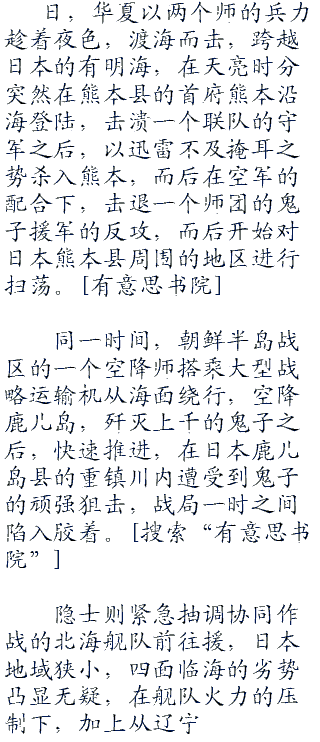 日，华夏以两个师的兵力
趁着夜色，渡海而击，跨越
日本的有明海，在天亮时分
突然在熊本县的首府熊本沿
海登陆，击溃一个联队的守
军之后，以迅雷不及掩耳之
势杀入熊本，而后在空军的
配合下，击退一个师团的鬼
子援军的反攻，而后开始对
日本熊本县周围的地区进行
扫荡。[有意思书院]
同一时间，朝鲜半岛战
区的一个空降师搭乘大型战
略运输机从海面绕行，空降
鹿儿岛，歼灭上千的鬼子之
后，快速推进，在日本鹿儿
岛县的重镇川内遭受到鬼子
的顽强狙击，战局一时之间
陷入胶着。[搜索“有意思书
院”]
隐士则紧急抽调协同作
战的北海舰队前往援，日本
地域狭小，四面临海的劣势
凸显无疑，在舰队火力的压
制下，加上从辽宁